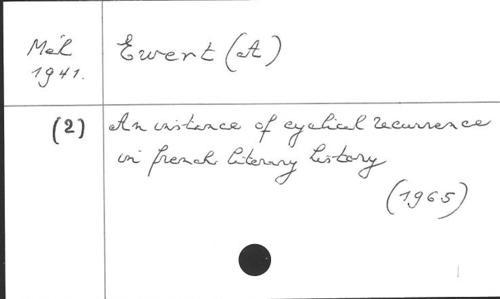 Mél
1941.
Ewert (A)
(2)
An instance of cyclical recurrence
in french literary history
(1965)